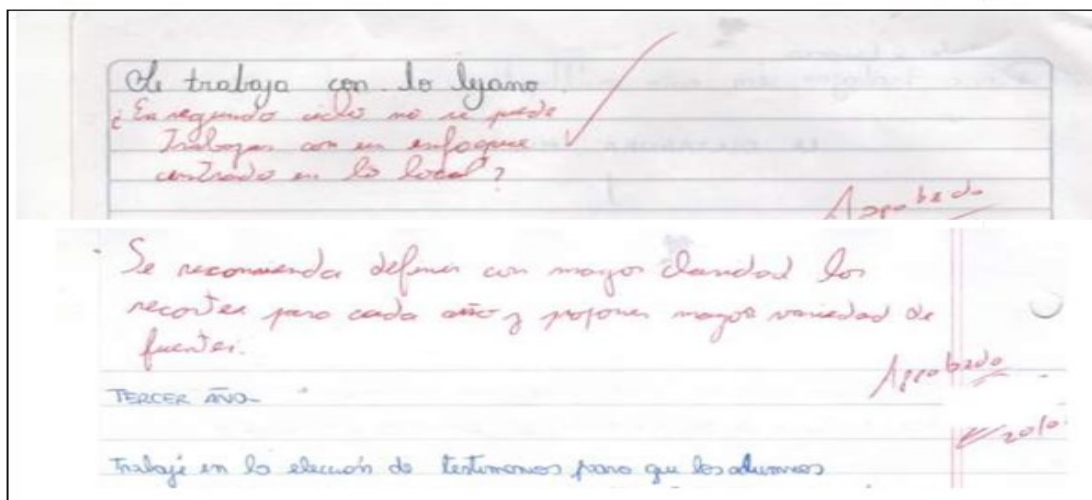 Se trabaja con lo lejano.
¿En segundo ciclo no se puede
Trabajar con un enfoque
centrado en lo local?
Aprobado
Se recomienda definir con mayor claridad los
recortes para cada año y proponer mayor variedad de
fuentes.
Aprobado
TERCER AÑO
2010
Trabajé en la elección de testimonios para que los alumnos